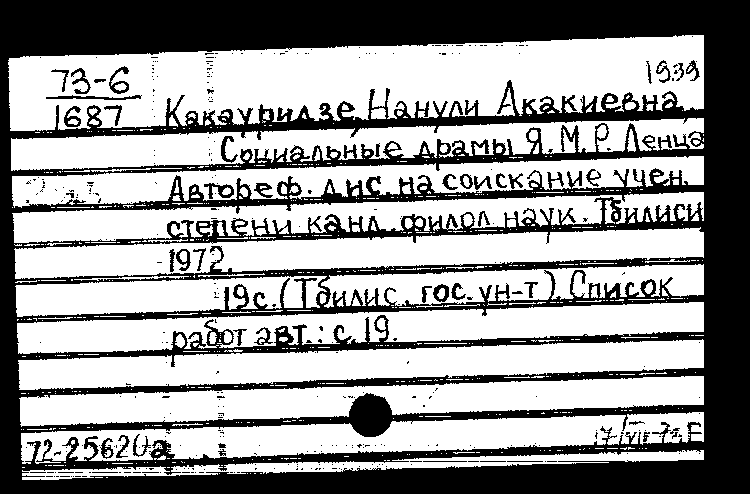 73-6
1939
1687
Какауридзе, Нанули Акакиевна.
Социальные драмы Я. М. Р. Ленца
Автореф. дис. на соискание учен.
степени канд. филол. наук. Тбилиси,
1972.
19с. (Тбилис. гос. ун-т). Список
работ авт.: с. 19.
72-25620а